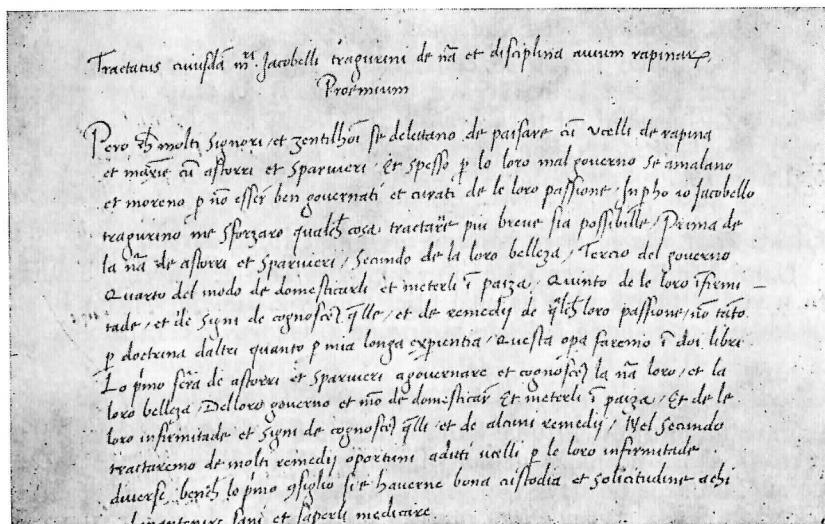 Tractatus cuiusdā mri Jacobelli tragurini de nā et disciplina avium rapinarꝝ
Proemium
Pero ch̄ molti signori / et zentilhōi se deleitano de paisare cū vcelli de rapina
et maxīe cū astorri et sparvieri / Et spesso p̲ lo loro mal governo se amalano
et moreno p̲ nō esser ben governati et curati de le loro passione / Inpho io Jacobello
tragurino me sforzaro qualch̄ cosa tractare piu breve sia possibille / Prima de
la nā de astorri et sparvieri / Secundo de la loro belleza / Tercio del governo
Quarto del modo de domesticarli et meterli ī paiza / Quinto de le loro īfirmi
tade / et de signi de cognoscer q̄lle / et de remedij de q̄lch̄ loro passione / nō tāto
p̲ doctrina daltri quanto p̲ mia longa exp̲ientia / Questa opa faremo ī doi libri
Lo p̄mo serà de astorri et sparvieri a governare et cognoscer la nā loro / et la
loro belleza / Delloro governo et mō de domesticar Et meterli ī paiza / Et de le
loro infirmitade et signi de cognoscer q̄lli / et de alcuni remedij / Nel secundo
tractaremo de molti remedij oportuni a ditti ucelli p̲ le loro infirmitade
diverse, bench̄ lo p̄mo ꝯsiglio sie haverne bona custodia et solicitudine achi
mantenire sani et saperli medicare